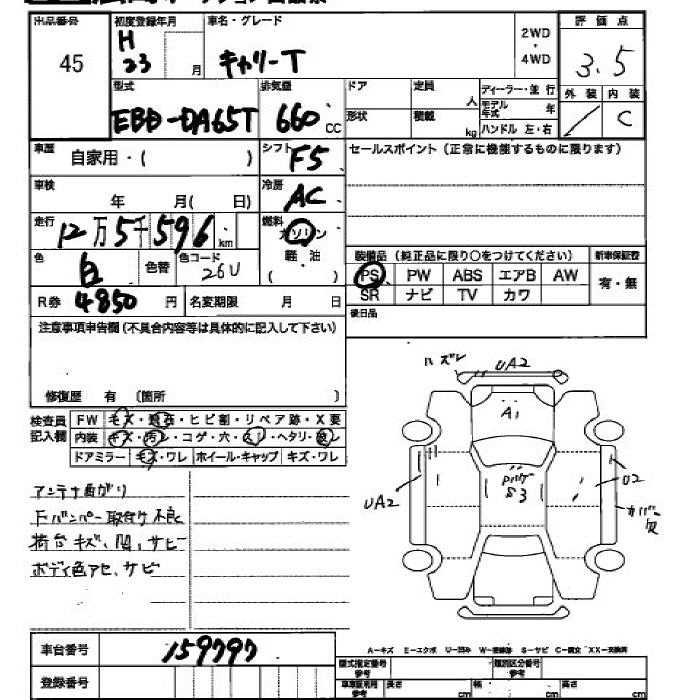 出品番号 初度登録年月 車名・グレード 2WD・4WD 評価点
45 H 23 月 キャリーT 3.5
型式 排気量 ドア 定員 人 ディーラー・並行 外装 内装
EBD-DA65T 660 CC 形状 積載 kg モデル年式 年 ハンドル 左・右 / C
車歴 自家用・( ) シフト F5 セールスポイント（正常に機能するものに限ります）
車検 年 月( 日) 冷房 AC
走行 12万5千596 km 燃料 ガソリン 軽・油 ( )
装備品（純正品に限り○をつけてください） 新車保証書
色 白 色替 色コード 26U
PS PW ABS エアB AW 有・無
SR ナビ TV カワ
R券 4850 円 名変期限 月 日 後日品
注意事項申告欄（不具合内容等は具体的に記入して下さい）
修復歴 有 〔箇所 〕
検査員記入欄
FW キズ・飛石・ヒビ割・リペア跡・X要
内装 キズ・汚レ・コゲ・穴・スレ・ヘタリ・臭レ
ドアミラー キズ・ワレ ホイール・キャップ キズ・ワレ
アンテナ曲がり
Fバンパー取付け不良
荷台キズ、凹、サビ
ボディ色アセ、サビ
ハズレ UA2
A1
S3
UA2
U2
カバー欠
車台番号 159797
登録番号
A－キズ E－エクボ U－凹み W－補修跡 S－サビ C－腐食 XX－交換済
型式指定番号 参考 類別区分番号 参考
車庫証明用 参考 長さ cm 幅 cm 高さ cm